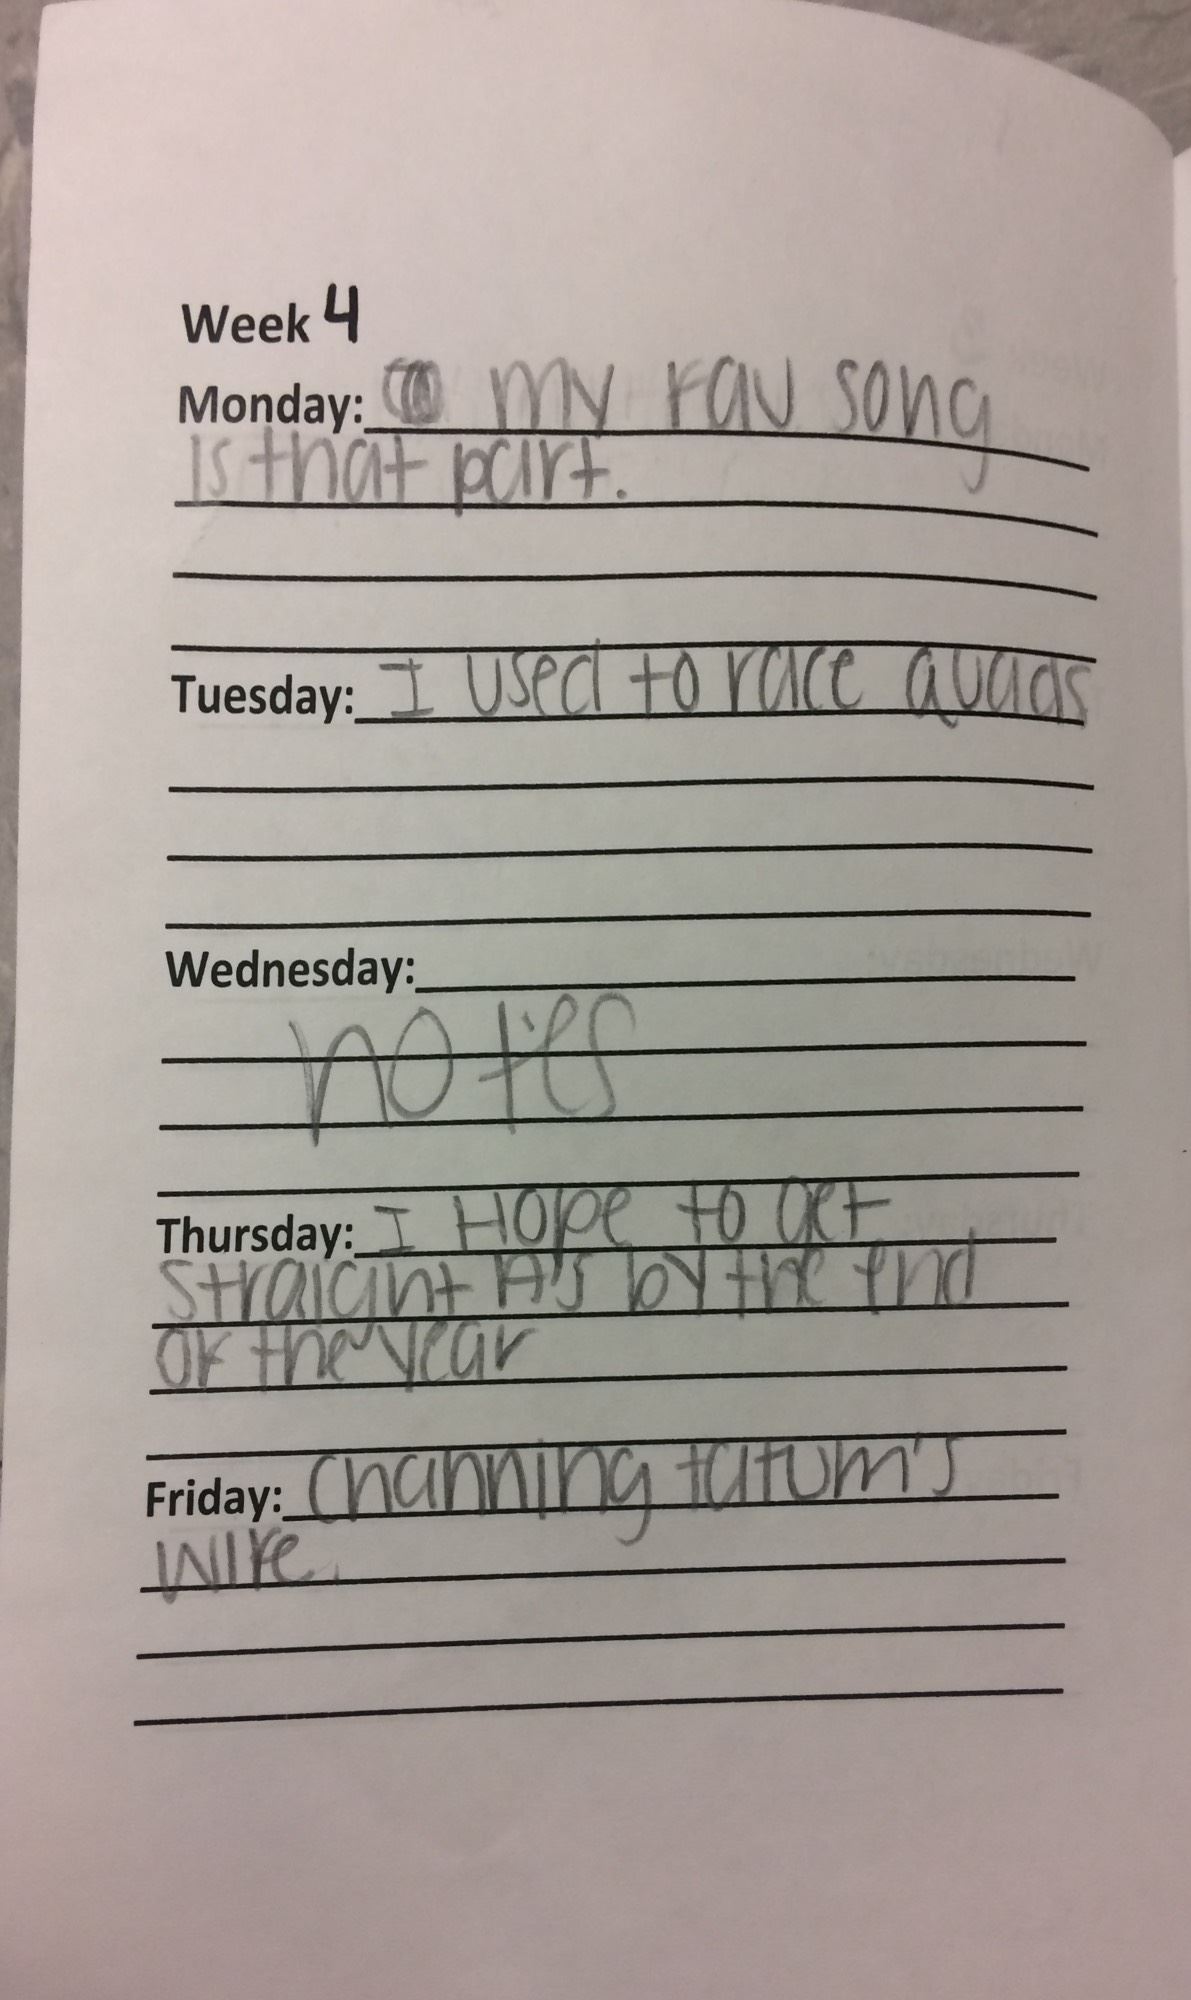 Week 4
Monday: my fav song
is that part.
Tuesday: I used to race quads
Wednesday:
notes
Thursday: I Hope to get
straight A's by the end
of the year
Friday: Channing tatum's
wife.